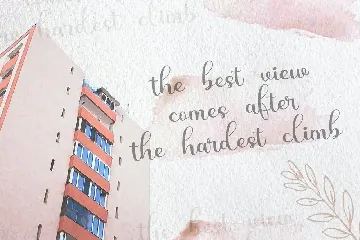 hardest climb
the best view
comes after
the hardest climb
the best view